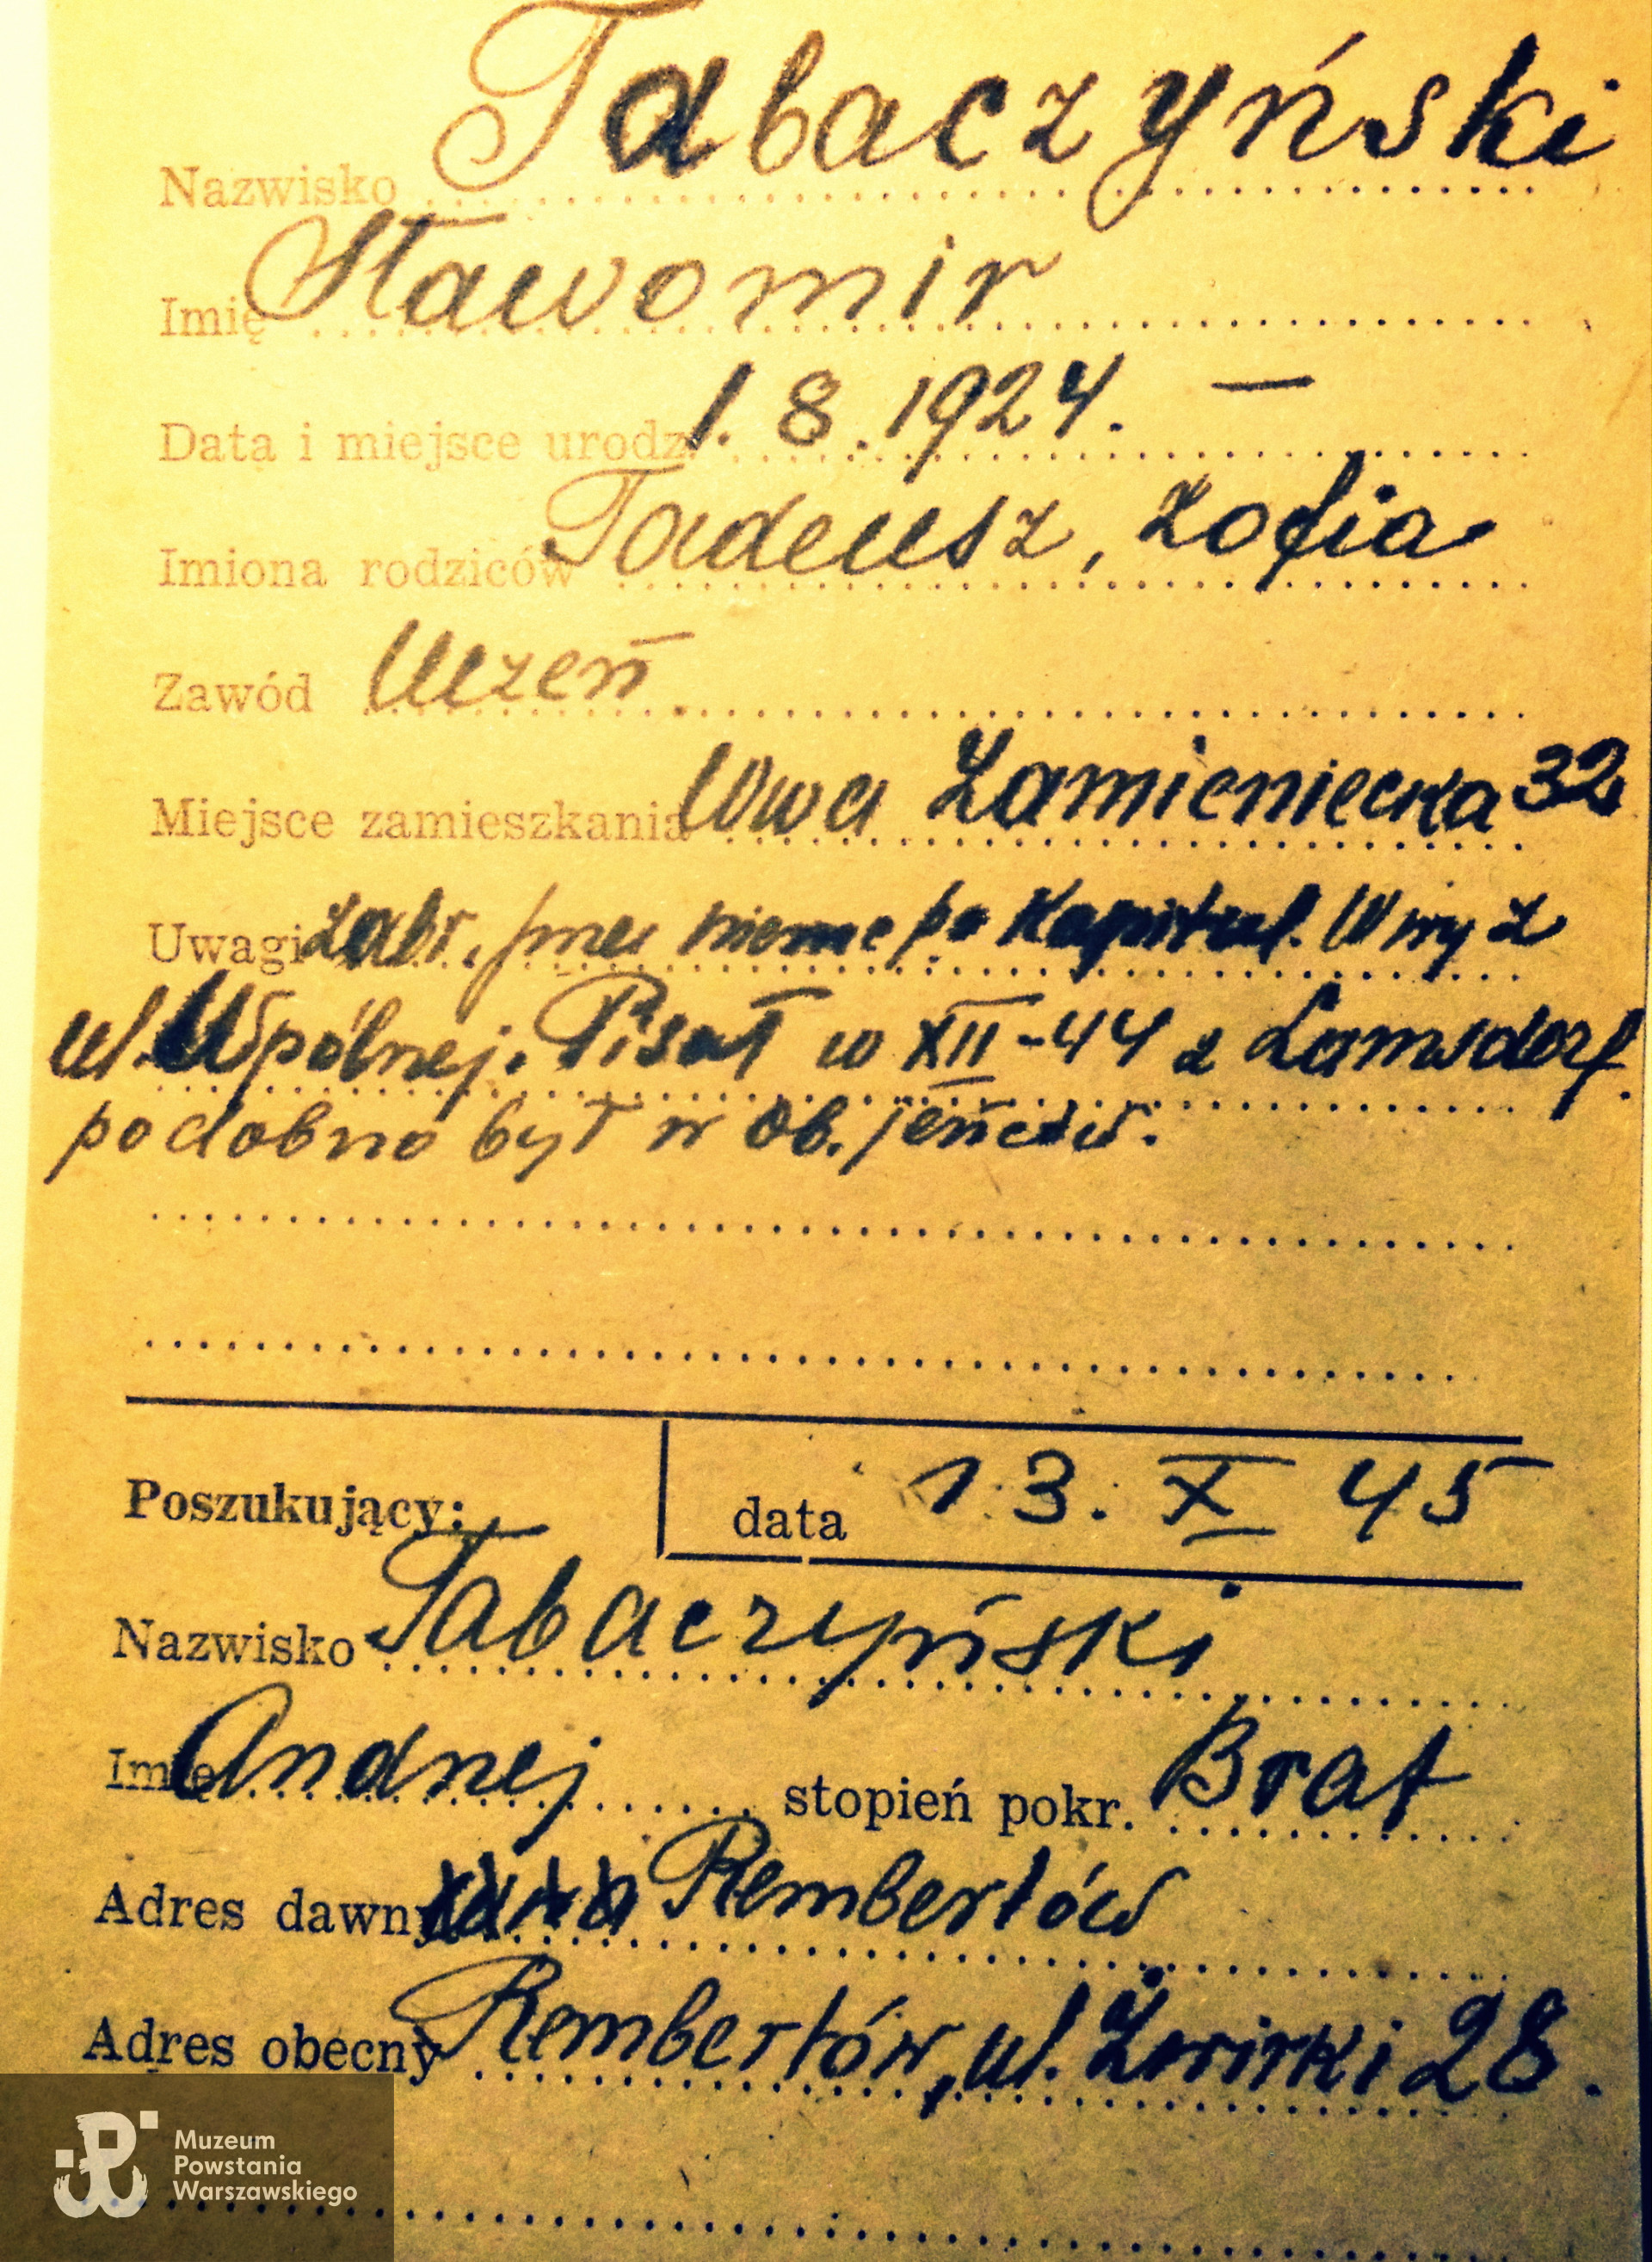 Nazwisko Tabaczyński
Imię Sławomir
Data i miejsce urodz. 1.8.1924. —
Imiona rodziców Tadeusz, Zofia
Zawód Uczeń
Miejsce zamieszkania Wwa Zamieniecka 32
Uwagi Zabr. pnez niemc po Kapitul. W wy z
ul. Wspólnej. Pisał w XII-44 z Lamsdorf
podobno był w ob. jeńców.
Poszukujący: data 13. X 45
Nazwisko Tabaczyński
Imię Andrzej stopień pokr. Brat
Adres dawny Rembertów
Adres obecny Rembertów, ul. Żwirki 28.
Muzeum
Powstania
Warszawskiego